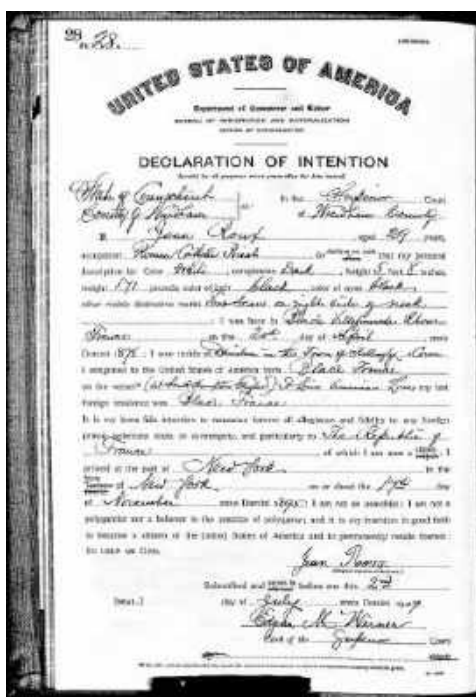 28
No. 28.
UNITED STATES OF AMERICA
Department of Commerce and Labor
BUREAU OF IMMIGRATION AND NATURALIZATION
DIVISION OF NATURALIZATION
DECLARATION OF INTENTION
(Invalid for all purposes seven years after the date hereof)
State of Connecticut
County of Windham
ss:
In the Superior Court
of Windham County
I, Jean Roux, aged 29 years,
occupation Roman Catholic Priest, do that my personal
description is: Color White, complexion Dark, height 5 feet inches,
weight 171 pounds, color of hair black, color of eyes black
other visible distinctive marks Scar on right side of neck
I was born in
France, on the 20th day of April, anno
Domini 18; I now reside at in the Town of Killingly, Conn.
I emigrated to the United States of America from France
on the vessel; my last
foreign residence was France
It is my bona fide intention to renounce forever all allegiance and fidelity to any foreign
prince, potentate, state, or sovereignty, and particularly to The Republic of
France, of which I am now a; I
arrived at the port of New York, in the
of New York on or about the 17th day
of November, anno Domini; I am not an anarchist; I am not a
polygamist nor a believer in the practice of polygamy; and it is my intention in good faith
to become a citizen of the United States of America and to permanently reside therein:
SO HELP ME GOD.
Jean Roux
Subscribed and before me this 2nd
[SEAL.] day of July, anno Domini 1907
Edgar M. Warner
Clerk of the Superior Court